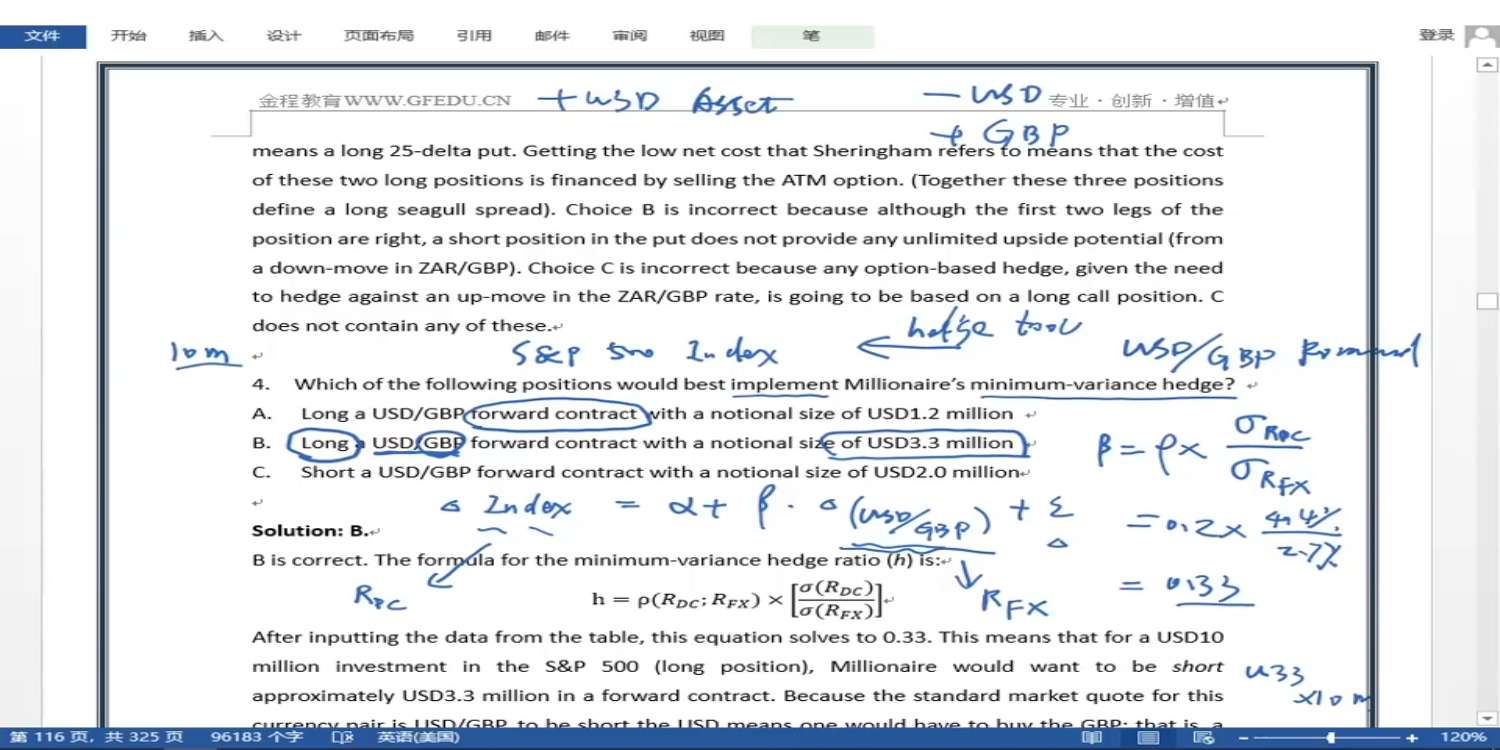 文件 开始 插入 设计 页面布局 引用 邮件 审阅 视图 笔 登录
金程教育WWW.GFEDU.CN + USD Asset - USD 专业·创新·增值
+ GBP
means a long 25-delta put. Getting the low net cost that Sheringham refers to means that the cost
of these two long positions is financed by selling the ATM option. (Together these three positions
define a long seagull spread). Choice B is incorrect because although the first two legs of the
position are right, a short position in the put does not provide any unlimited upside potential (from
a down-move in ZAR/GBP). Choice C is incorrect because any option-based hedge, given the need
to hedge against an up-move in the ZAR/GBP rate, is going to be based on a long call position. C
does not contain any of these.
hedge tool
10m S&P 500 Index USD/GBP Forward
4. Which of the following positions would best implement Millionaire's minimum-variance hedge?
A. Long a USD/GBP forward contract with a notional size of USD1.2 million
B. Long a USD/GBP forward contract with a notional size of USD3.3 million
C. Short a USD/GBP forward contract with a notional size of USD2.0 million
β = ρ × σRDC / σRFX
△ Index = α + β · △ (USD/GBP) + Σ
= 0.2 × 4.4% / 2.7%
Solution: B.
B is correct. The formula for the minimum-variance hedge ratio (h) is:
RDC
h = ρ(RDC; RFX) × [σ(RDC) / σ(RFX)]
RFX
= 0.33
After inputting the data from the table, this equation solves to 0.33. This means that for a USD10
million investment in the S&P 500 (long position), Millionaire would want to be short
0.33
approximately USD3.3 million in a forward contract. Because the standard market quote for this
×10 m
currency pair is USD/GBP, to be short the USD means one would have to buy the GBP; that is, a
第 116 页, 共 325 页 96183 个字 英语(美国) 120%